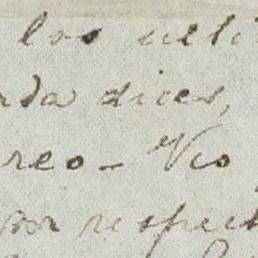 los ulti
rda dices,
reo - No
por respect